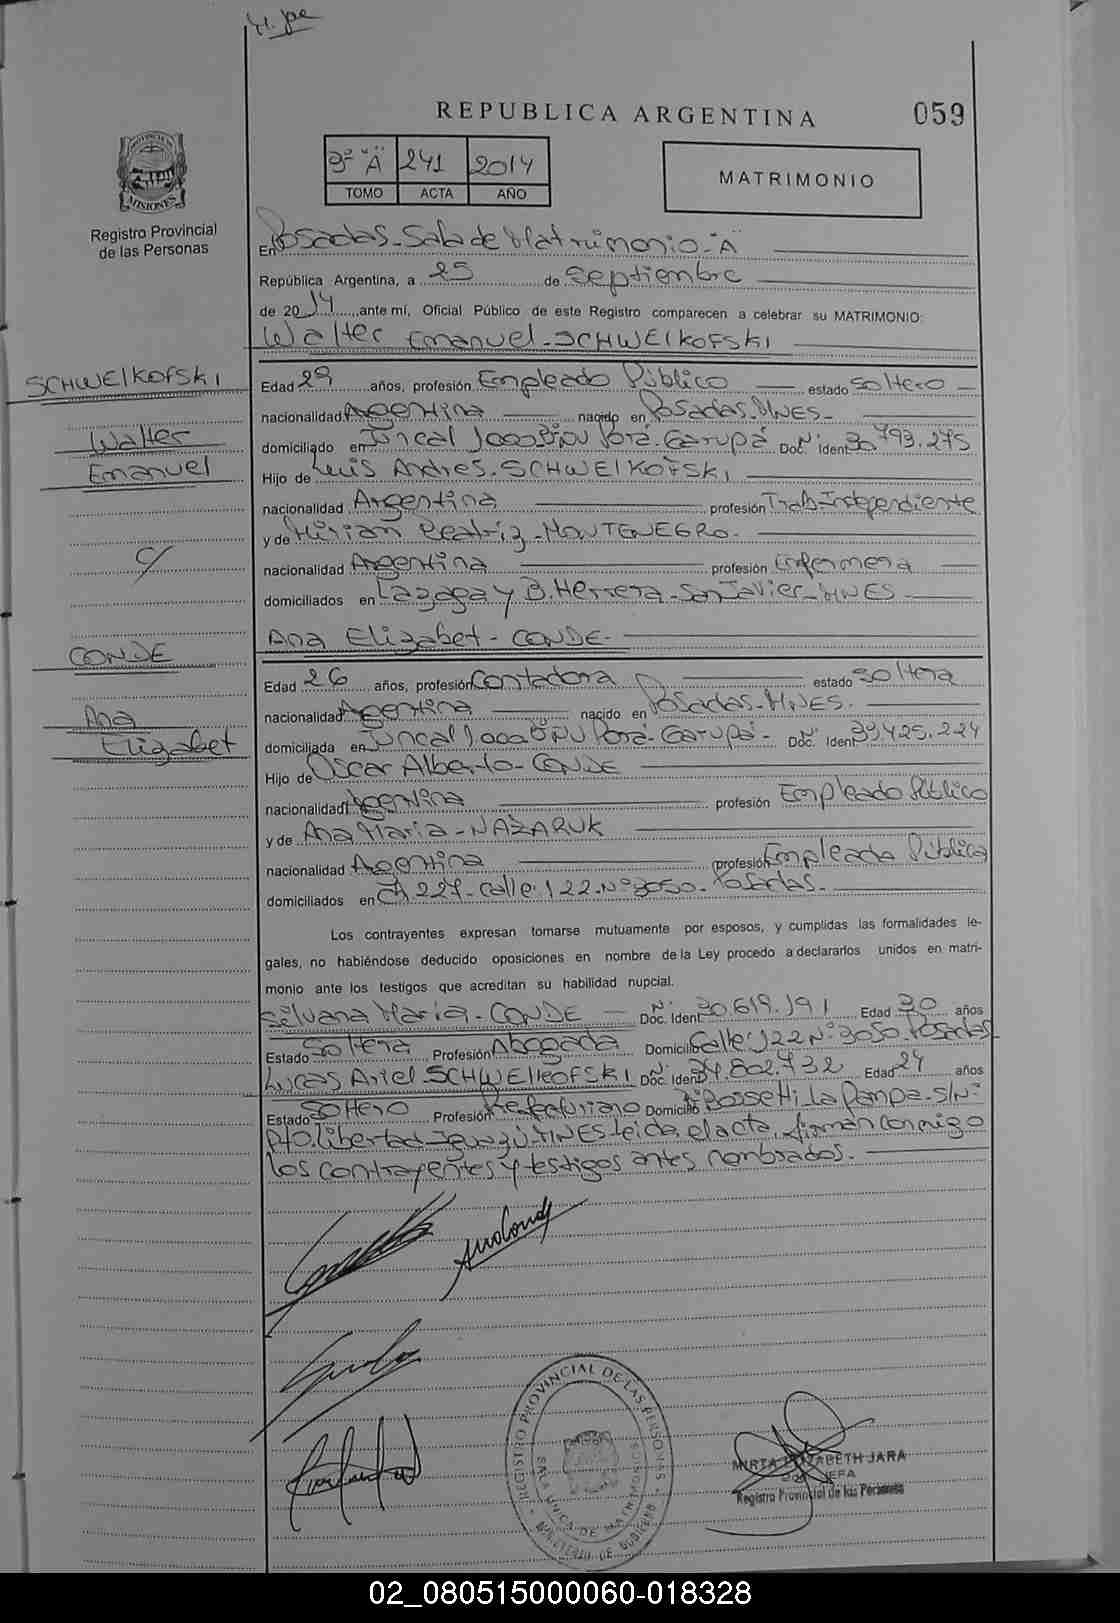 REPUBLICA ARGENTINA 059
PROVINCIA DE MISIONES
Registro Provincial
de las Personas
3º "A" 241 2014
TOMO ACTA AÑO
MATRIMONIO
En Posadas-Sala de Matrimonio-"A"
República Argentina, a 25 de Septiembre
de 2014 ante mí, Oficial Público de este Registro comparecen a celebrar su MATRIMONIO:
Walter Emanuel-SCHWEIKOFSKI
SCHWEIKOFSKI
Walter
Emanuel
c/
CONDE
Ana
Elizabet
Edad 29 años, profesión Empleado Público estado Soltero
nacionalidad Argentina nacido en Posadas-MNES-
domiciliado en Juncal Porá-Garupá Doc. Ident. 30.793.275
Hijo de Luis Andres-SCHWEIKOFSKI
nacionalidad Argentina profesión Trab-Independiente
y de Mirian Beatriz-MONTENEGRO-
nacionalidad Argentina profesión Enfermera
domiciliados en y B. Herrera-San Javier-MNES
Ana Elizabet-CONDE-
Edad 26 años, profesión Contadora estado Soltera
nacionalidad Argentina nacido en Posadas-MNES.
domiciliada en Juncal Porá-Garupá- Doc. Ident.
Hijo de Oscar Alberto-CONDE
nacionalidad Argentina profesión Empleado Público
y de Ana Maria-NAZARUK
nacionalidad Argentina profesión Empleada Pública
domiciliados en Ch 227-Calle 122-Nº3050-Posadas-
Los contrayentes expresan tomarse mutuamente por esposos, y cumplidas las formalidades le-
gales, no habiéndose deducido oposiciones en nombre de la Ley procedo a declararlos unidos en matri-
monio ante los testigos que acreditan su habilidad nupcial.
Silvana Maria-CONDE Doc. Ident. 30.619.191 Edad 30 años
Estado Soltera Profesión Abogada Domicilio Calle 122 Nº 3050-Posadas
Lucas Ariel SCHWEIKOFSKI Doc. Ident. 34.802.732 Edad 24 años
Estado Soltero Profesión Prefecturiano Domicilio Bossetti-La Pampa-S/Nº
Pto. Libertad-Iguazú-MNES-leida el acta, firman conmigo
los contrayentes y testigos antes nombrados.
REGISTRO PROVINCIAL DE LAS PERSONAS
SALA UNICA DE MATRIMONIOS
MINISTERIO DE GOBIERNO
MIRTA ELIZABETH JARA
JEFA
Registro Provincial de las Personas
02_080515000060-018328